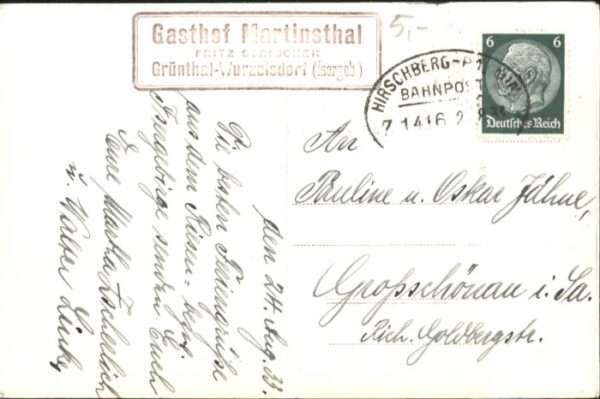 Gasthof Martinsthal
FRITZ
Grünthal-Wurzelsdorf (Isergeb.)
5,-
HIRSCHBERG-
BAHNPOST
6 6
Deutsches Reich
Den 24. Aug. 33.
Die besten Feriengrüße
aus dem Riesen- bezw.
Isergebirge senden Euch
Eure Martha
u. Walter
An
Pauline u. Oskar Jähne,
Großschönau i. Sa.
Rich. Goldbergstr.